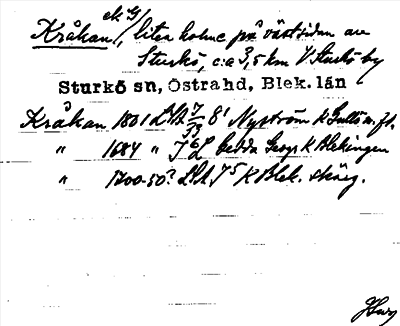 Kråkan, ek. G/, liten holme på västsidan av
Sturkö, c:a 3,5 km V Sturkö by
Sturkö sn, Östrahd, Blek. län
Kråkan 1801 LSA 8¹ Nyström K
" 1684 " Gedda Geogr K Blekingen
" 1700-50? LSA J5 K Blek. skärg.